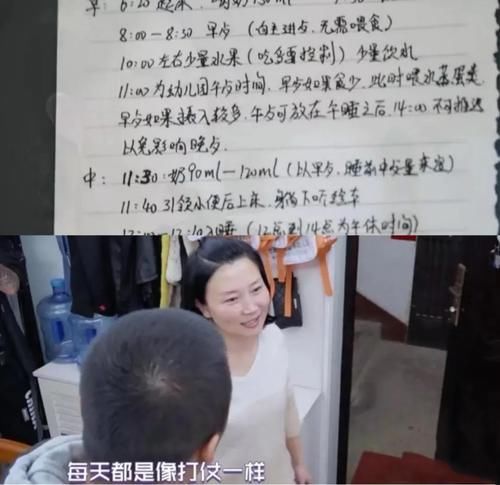 早: 6:20 起床
8:00—8:30 早歺 (自主进歺,无需喂食)
10:00左右少量水果 (吃多要控制) 少量饮水
11:00为幼儿园午歺时间, 早歺如果食少,此时喂水蒸蛋类
早歺如果摄入较多,午歺可放在午睡之后,14:00 不可推迟
以免影响晚歺
中: 11:30:奶90ml—120ml (以早歺、睡前中
11:40 引领小便后上床,
入睡 (12点到14点为午休时间)
每天都是像打仗一样